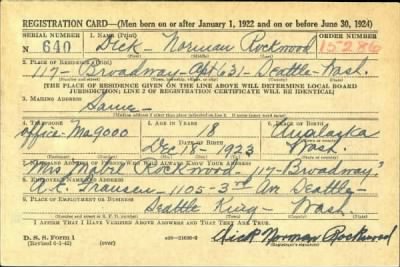 REGISTRATION CARD—(Men born on or after January 1, 1922 and on or before June 30, 1924)
SERIAL NUMBER 1. NAME (Print) ORDER NUMBER
N 640 Dick - Norman Rockwood 15286
2. PLACE OF RESIDENCE (Print)
117 - Broadway - Apt 631 - Seattle - Wash.
[THE PLACE OF RESIDENCE GIVEN ON THE LINE ABOVE WILL DETERMINE LOCAL BOARD
JURISDICTION; LINE 2 OF REGISTRATION CERTIFICATE WILL BE IDENTICAL]
3. MAILING ADDRESS
Same -
4. TELEPHONE 5. AGE IN YEARS 6. PLACE OF BIRTH
office - Ma 9000 18
DATE OF BIRTH
Dec 18 - 1923 Wash.
7. NAME AND ADDRESS OF PERSON WHO WILL ALWAYS KNOW YOUR ADDRESS
Mrs Mabel Rockwood - 117 - Broadway
8. EMPLOYER'S NAME AND ADDRESS
1105 - 3rd Av Seattle -
9. PLACE OF EMPLOYMENT OR BUSINESS
Seattle King - Wash.
I AFFIRM THAT I HAVE VERIFIED ABOVE ANSWERS AND THAT THEY ARE TRUE.
D. S. S. Form 1
(Revised 6-1-42) Dick Norman Rockwood